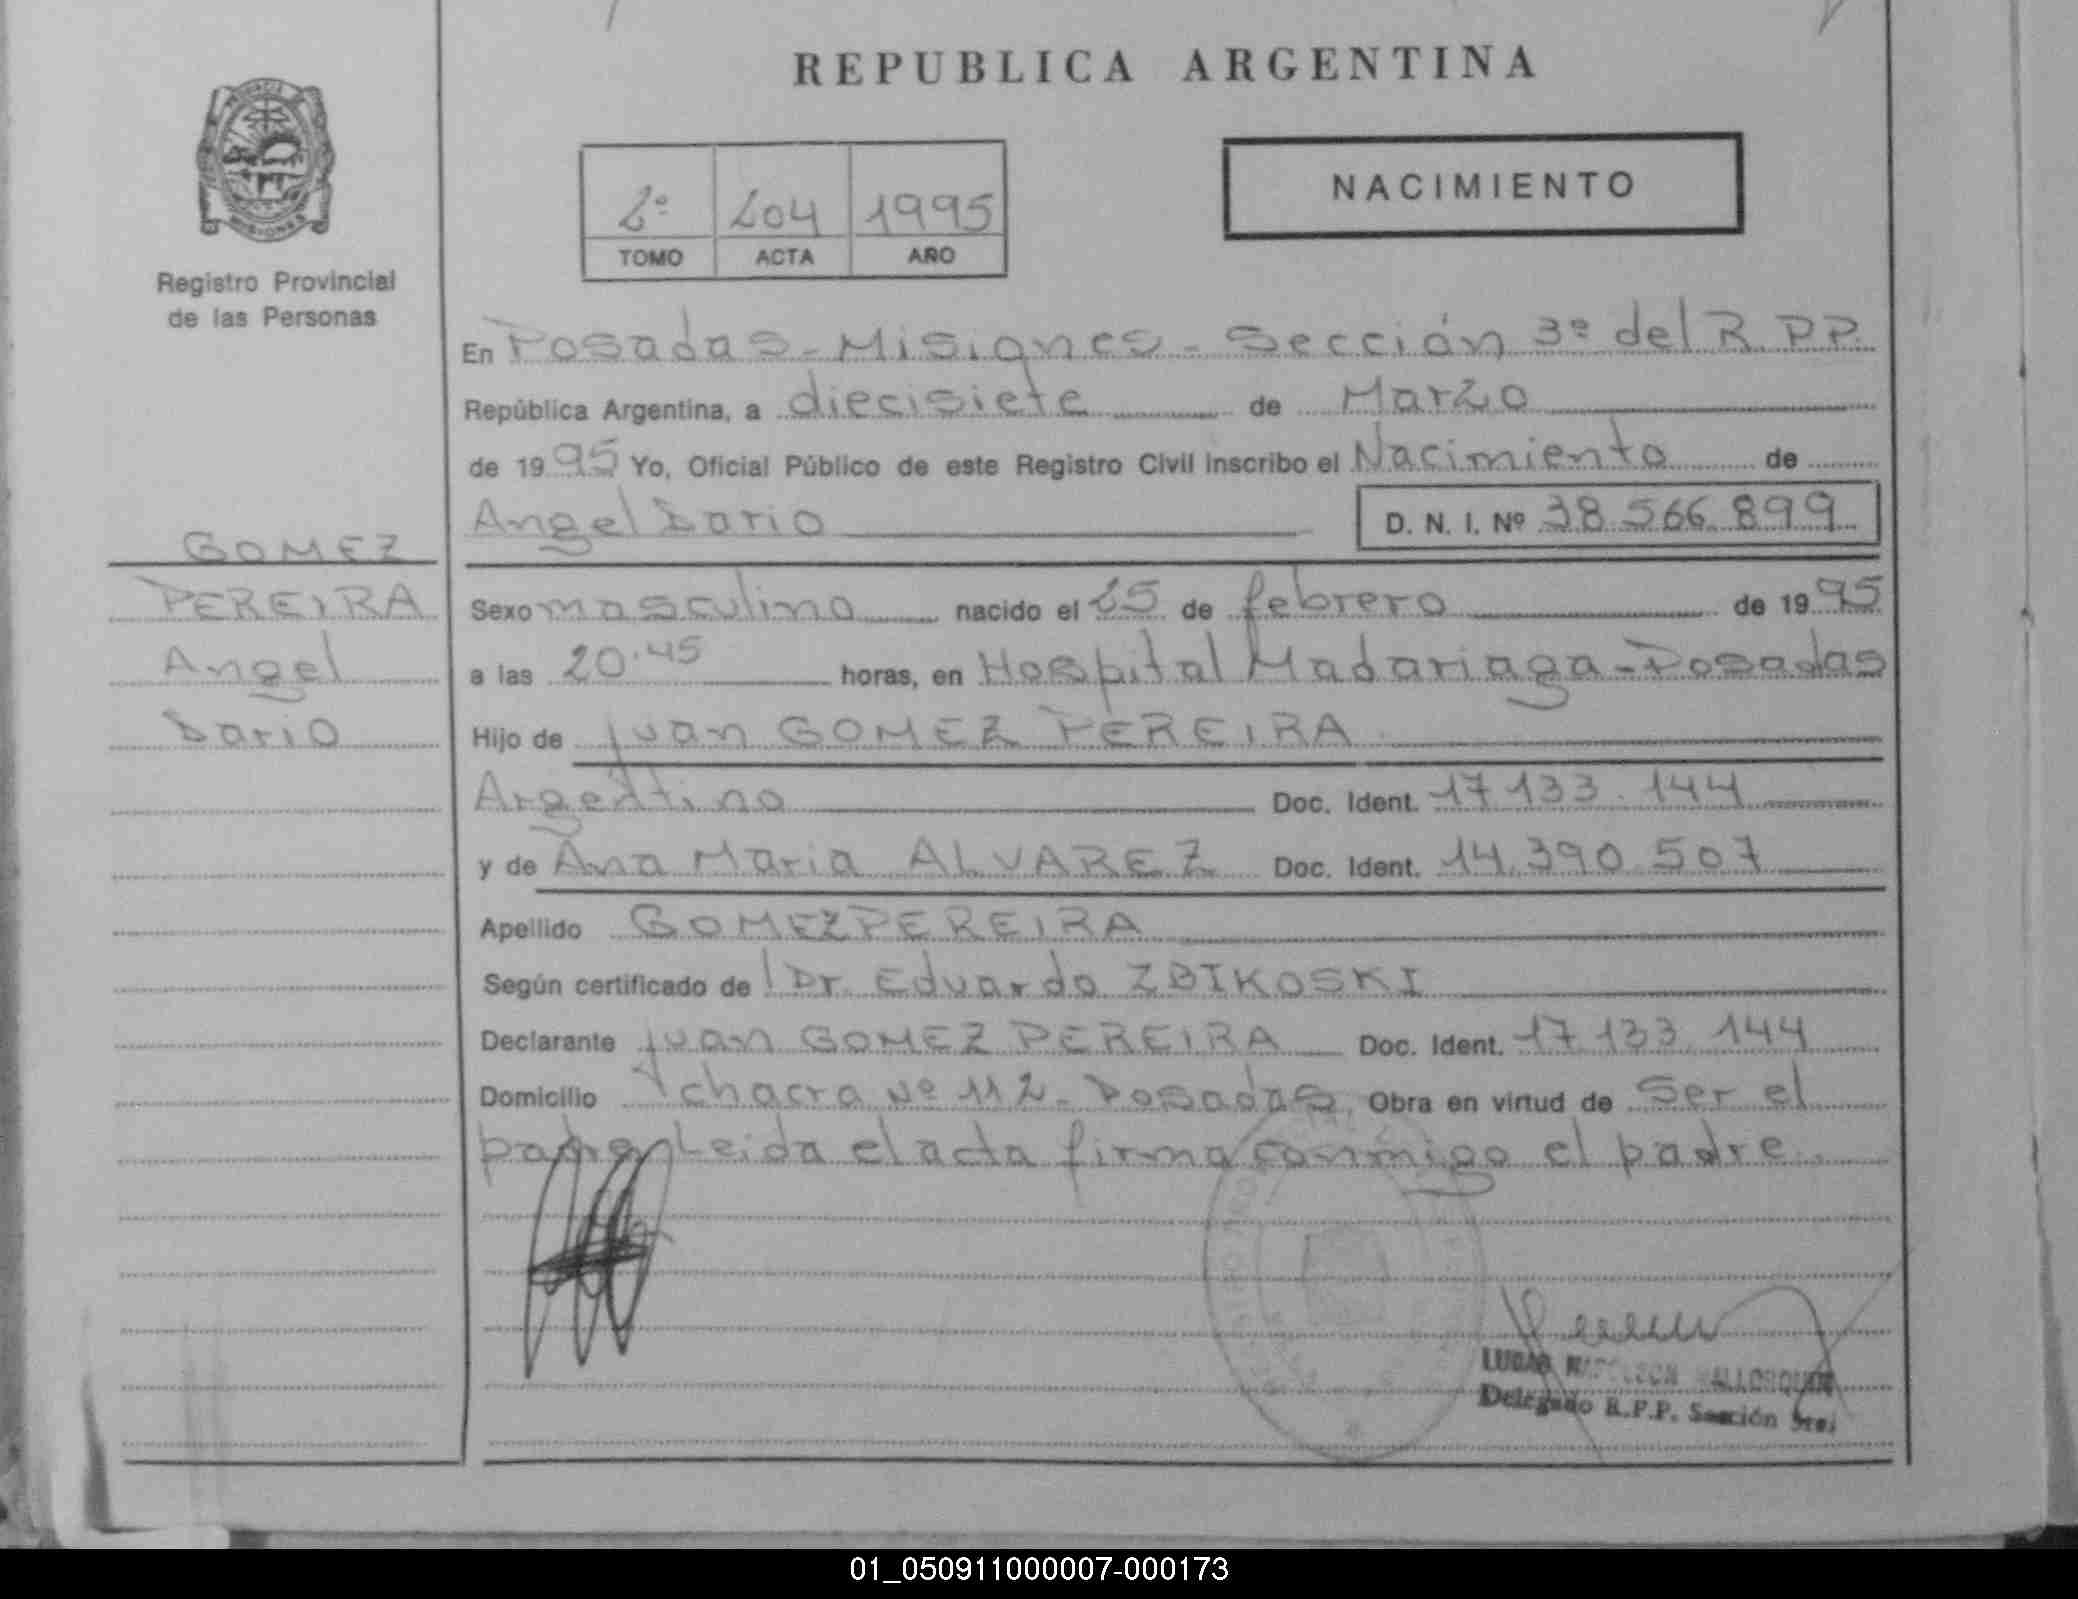 REPUBLICA ARGENTINA
NACIMIENTO
2º 204 1995
TOMO ACTA AÑO
Registro Provincial
de las Personas
En Posadas - Misiones - Sección 3ª del R.P.P.
República Argentina, a diecisiete de Marzo
de 1995 Yo, Oficial Público de este Registro Civil inscribo el Nacimiento de
Angel Dario D. N. I. Nº 38.566.899
GOMEZ
PEREIRA
Angel
Dario
Sexo masculino nacido el 25 de febrero de 1995
a las 20.45 horas, en Hospital Madariaga - Posadas
Hijo de Juan GOMEZ PEREIRA
Argentino Doc. Ident. 17.133.144
y de Ana Maria ALVAREZ Doc. Ident. 14.390.507
Apellido GOMEZ PEREIRA
Según certificado de Dr. Eduardo ZBIKOSKI
Declarante Juan GOMEZ PEREIRA Doc. Ident. 17.133.144
Domicilio chacra Nº 112 - Posadas Obra en virtud de ser el
padre Leida el acta firma conmigo el padre.
Delegado R.P.P. Sección 3ra.
01_050911000007-000173